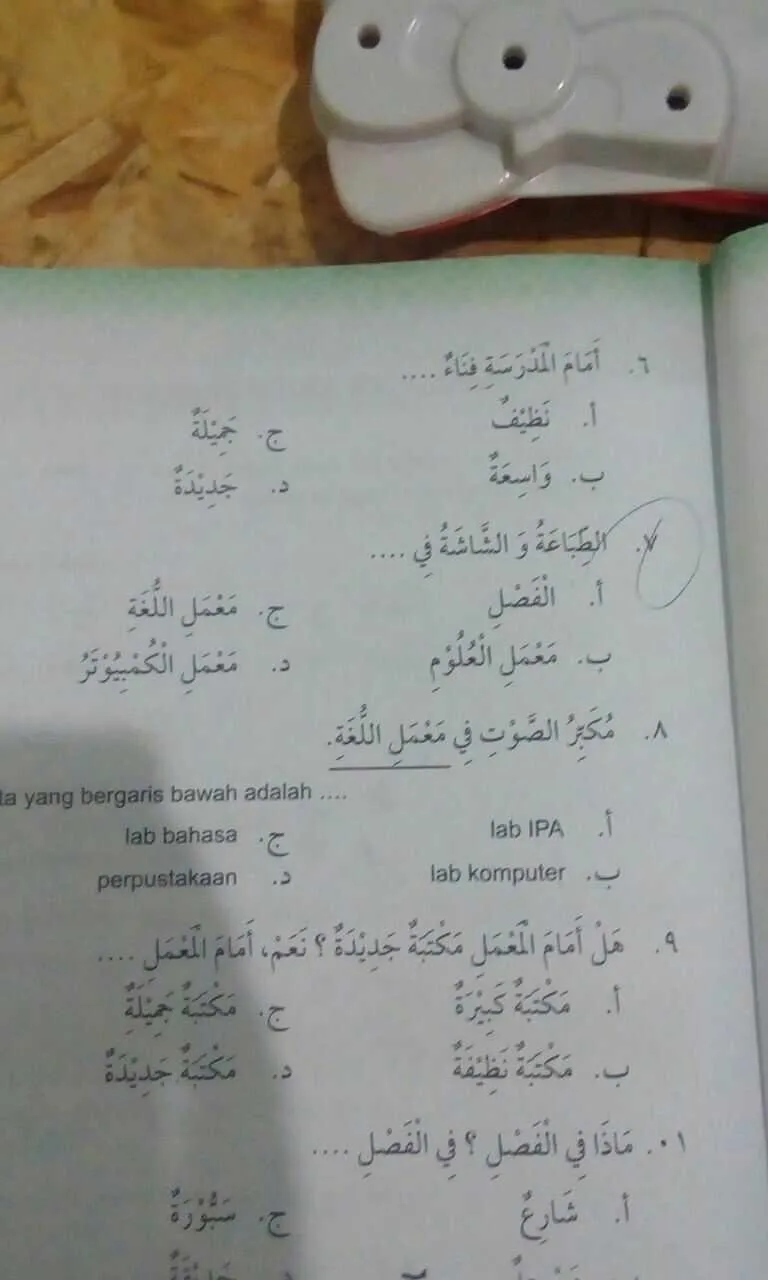 ٦. أَمَامَ الْمَدْرَسَةِ فِنَاءٌ ....
أ. نَظِيْفٌ ج. جَمِيْلَةٌ
ب. وَاسِعَةٌ د. جَدِيْدَةٌ
٧. الطِّبَاعَةُ وَ الشَّاشَةُ فِي ....
أ. الْفَصْلِ ج. مَعْمَلِ اللُّغَةِ
ب. مَعْمَلِ الْعُلُوْمِ د. مَعْمَلِ الْكُمْبِيُوْتَرُ
٨. مُكَبِّرُ الصَّوْتِ فِي مَعْمَلِ اللُّغَةِ.
yang bergaris bawah adalah ....
أ. lab IPA ج. lab bahasa
ب. lab komputer د. perpustakaan
٩. هَلْ أَمَامَ الْمَعْمَلِ مَكْتَبَةٌ جَدِيْدَةٌ ؟ نَعَمْ، أَمَامَ الْمَعْمَلِ ....
أ. مَكْتَبَةٌ كَبِيْرَةٌ ج. مَكْتَبَةٌ جَمِيْلَةٌ
ب. مَكْتَبَةٌ نَظِيْفَةٌ د. مَكْتَبَةٌ جَدِيْدَةٌ
١٠. مَاذَا فِي الْفَصْلِ ؟ فِي الْفَصْلِ ....
أ. شَارِعٌ ج. سَبُّوْرَةٌ